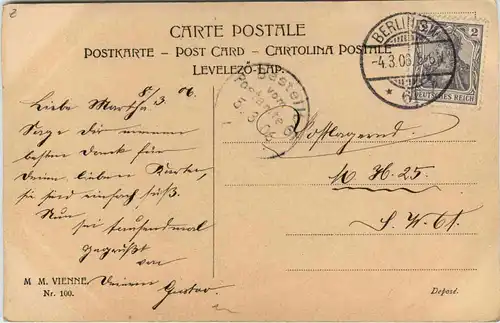 2
CARTE POSTALE
POSTKARTE – POST CARD – CARTOLINA POSTALE
LEVELEZŐ-LAP.
BERLIN S.W.
-4.3.06. 
2
DEUTSCHES REICH
Bestellt
vom
Postamte
5. 3. 06
3. 06.
Liebe Martha,
Sage Dir meinen
besten Dank für
Deine lieben Karten,
sie sind einfach süß.
Nun, sei tausendmal
gegrüßt
von
Deinem
Gustav.
Postlagernd.
M H. 25.
S. W. 61.
M. M. VIENNE.
Nr. 100.
Deposé.